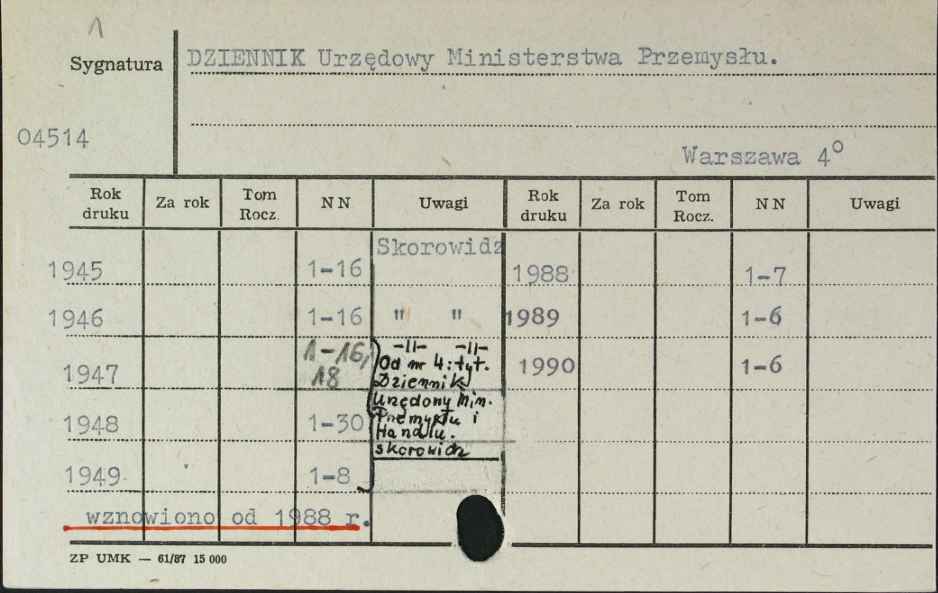 1
Sygnatura DZIENNIK Urzędowy Ministerstwa Przemysłu.
04514
Warszawa 4°
Rok druku Za rok Tom Rocz. NN Uwagi Rok druku Za rok Tom Rocz. NN Uwagi
Skorowidz
1945 1-16 1988 1-7
1946 1-16 " " 1989 1-6
1947 1-16, 18 -||- -||- 1990 1-6
Od nr 4: tyt.
Dziennik
Urzędowy Min.
Przemysłu i
Handlu.
1948 1-30
skorowidz
1949 1-8
wznowiono od 1988 r.
ZP UMK — 61/87 15 000